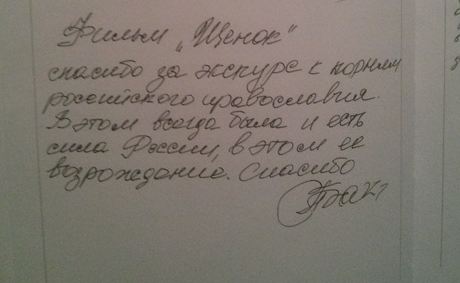 Фильм „Щенок"
спасибо за экскурс к корням
российского православия.
В этом всегда была и есть
сила России, в этом ее
возрождение. Спасибо